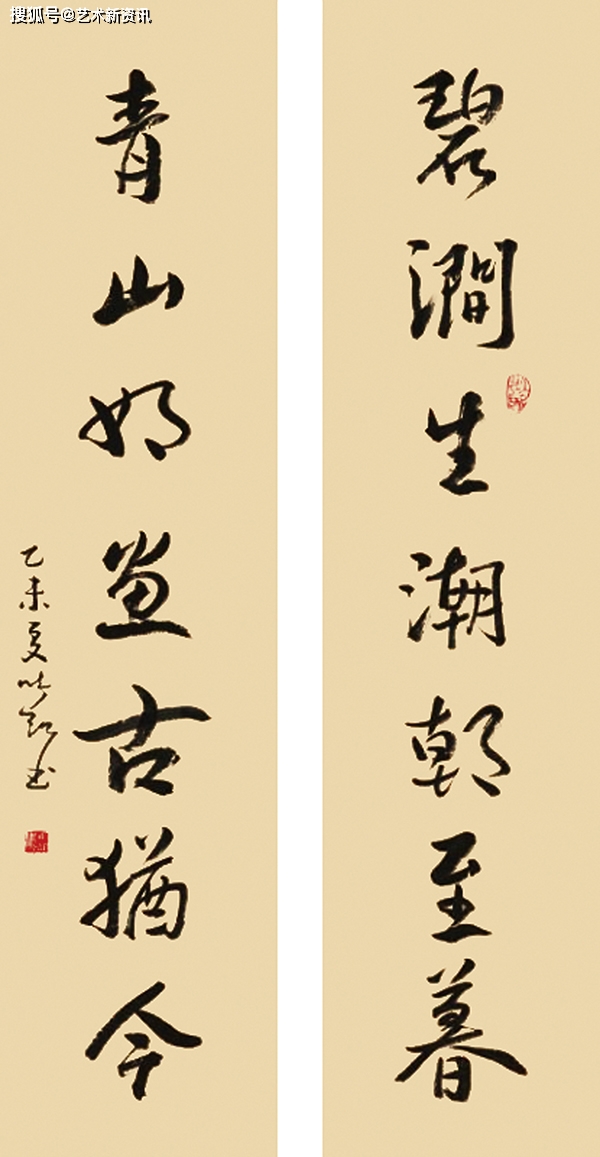 搜狐号@艺术新资讯
碧澗生潮朝至暮
青山如畫古猶今
乙未夏书